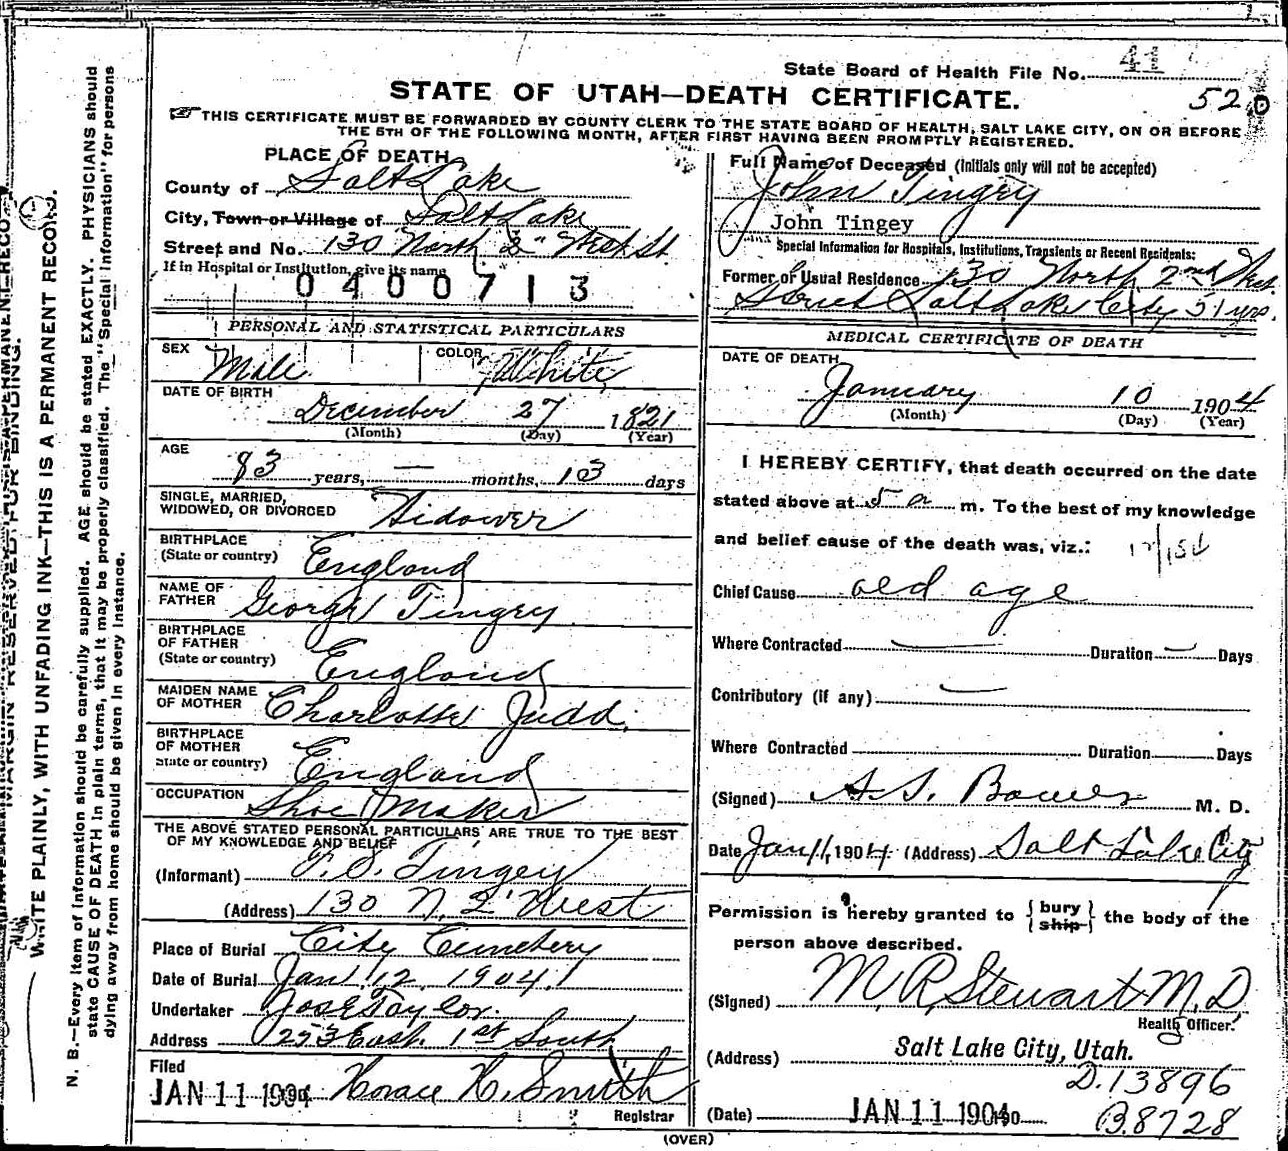 State Board of Health File No. 41
STATE OF UTAH—DEATH CERTIFICATE.
520
THIS CERTIFICATE MUST BE FORWARDED BY COUNTY CLERK TO THE STATE BOARD OF HEALTH, SALT LAKE CITY, ON OR BEFORE
THE 5TH OF THE FOLLOWING MONTH, AFTER FIRST HAVING BEEN PROMPTLY REGISTERED.
PLACE OF DEATH
County of Salt Lake
City, Town or Village of Salt Lake
Street and No. 130 North 2" West St.
If in Hospital or Institution, give its name
0400713
PERSONAL AND STATISTICAL PARTICULARS
SEX Male COLOR White
DATE OF BIRTH
December 27 1821
(Month) (Day) (Year)
AGE
83 years, — months, 13 days
SINGLE, MARRIED,
WIDOWED, OR DIVORCED Widower
BIRTHPLACE
(State or country) England
NAME OF
FATHER George Tingey
BIRTHPLACE
OF FATHER
(State or country) England
MAIDEN NAME
OF MOTHER Charlotte Judd
BIRTHPLACE
OF MOTHER
State or country) England
OCCUPATION Shoe Maker
THE ABOVE STATED PERSONAL PARTICULARS ARE TRUE TO THE BEST
OF MY KNOWLEDGE AND BELIEF
(Informant) Tingey
(Address) 130 N. 2" West
Place of Burial City Cemetery
Date of Burial Jan. 12, 1904.
Undertaker Jos E Taylor
Address 253 East 1st South
Filed
JAN 11 1904 Horace H. Smith
Registrar
Full Name of Deceased (Initials only will not be accepted)
John Tingey
John Tingey
Special Information for Hospitals, Institutions, Transients or Recent Residents:
Former or Usual Residence 130 North 2nd West
Street Salt Lake City 51 yrs.
MEDICAL CERTIFICATE OF DEATH
DATE OF DEATH
January 10 1904
(Month) (Day) (Year)
I HEREBY CERTIFY, that death occurred on the date
stated above at 5 a m. To the best of my knowledge
and belief cause of the death was, viz.:
Chief Cause old age
Where Contracted — Duration — Days
Contributory (if any) —
Where Contracted Duration Days
(Signed) Bower M. D.
Date Jan 11, 1904. (Address) Salt Lake City
Permission is hereby granted to { bury ship } the body of the
person above described.
(Signed) M. R. Stewart M. D
Health Officer.
(Address) Salt Lake City, Utah.
D. 13896
(Date) JAN 11 1904 190
B. 8728
(OVER)
MARGIN RESERVED FOR BINDING.
WRITE PLAINLY, WITH UNFADING INK—THIS IS A PERMANENT RECORD.
N. B.—Every item of information should be carefully supplied. AGE should be stated EXACTLY. PHYSICIANS should
state CAUSE OF DEATH in plain terms, that it may be properly classified. The "Special Information" for persons
dying away from home should be given in every instance.